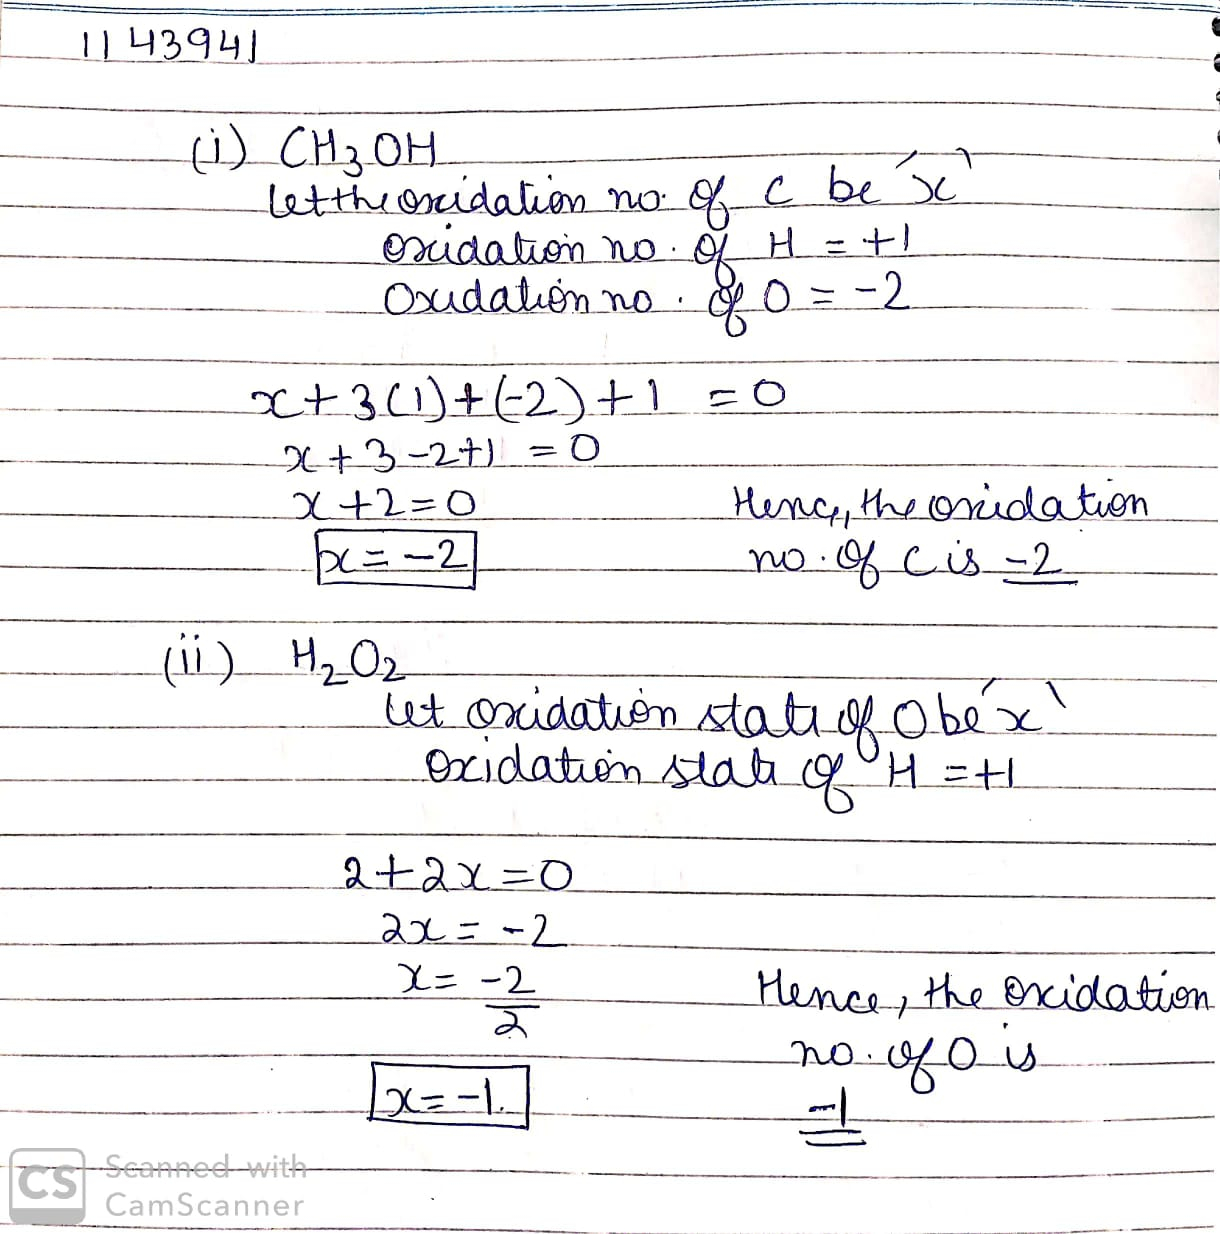 1143941
(i) CH₃OH
Let the oxidation no. of C be 'x'
oxidation no. of H = +1
Oxudation no. of O = -2
x + 3(1) + (-2) + 1 = 0
x + 3 - 2 + 1 = 0
x + 2 = 0
x = -2
Hence, the oxidation
no. of C is -2
(ii) H₂O₂
Let oxidation state of O be 'x'
Oxidation state of H = +1
2 + 2x = 0
2x = -2
x = -2/2
x = -1.
Hence, the oxidation
no. of O is
-1
CS Scanned with
CamScanner